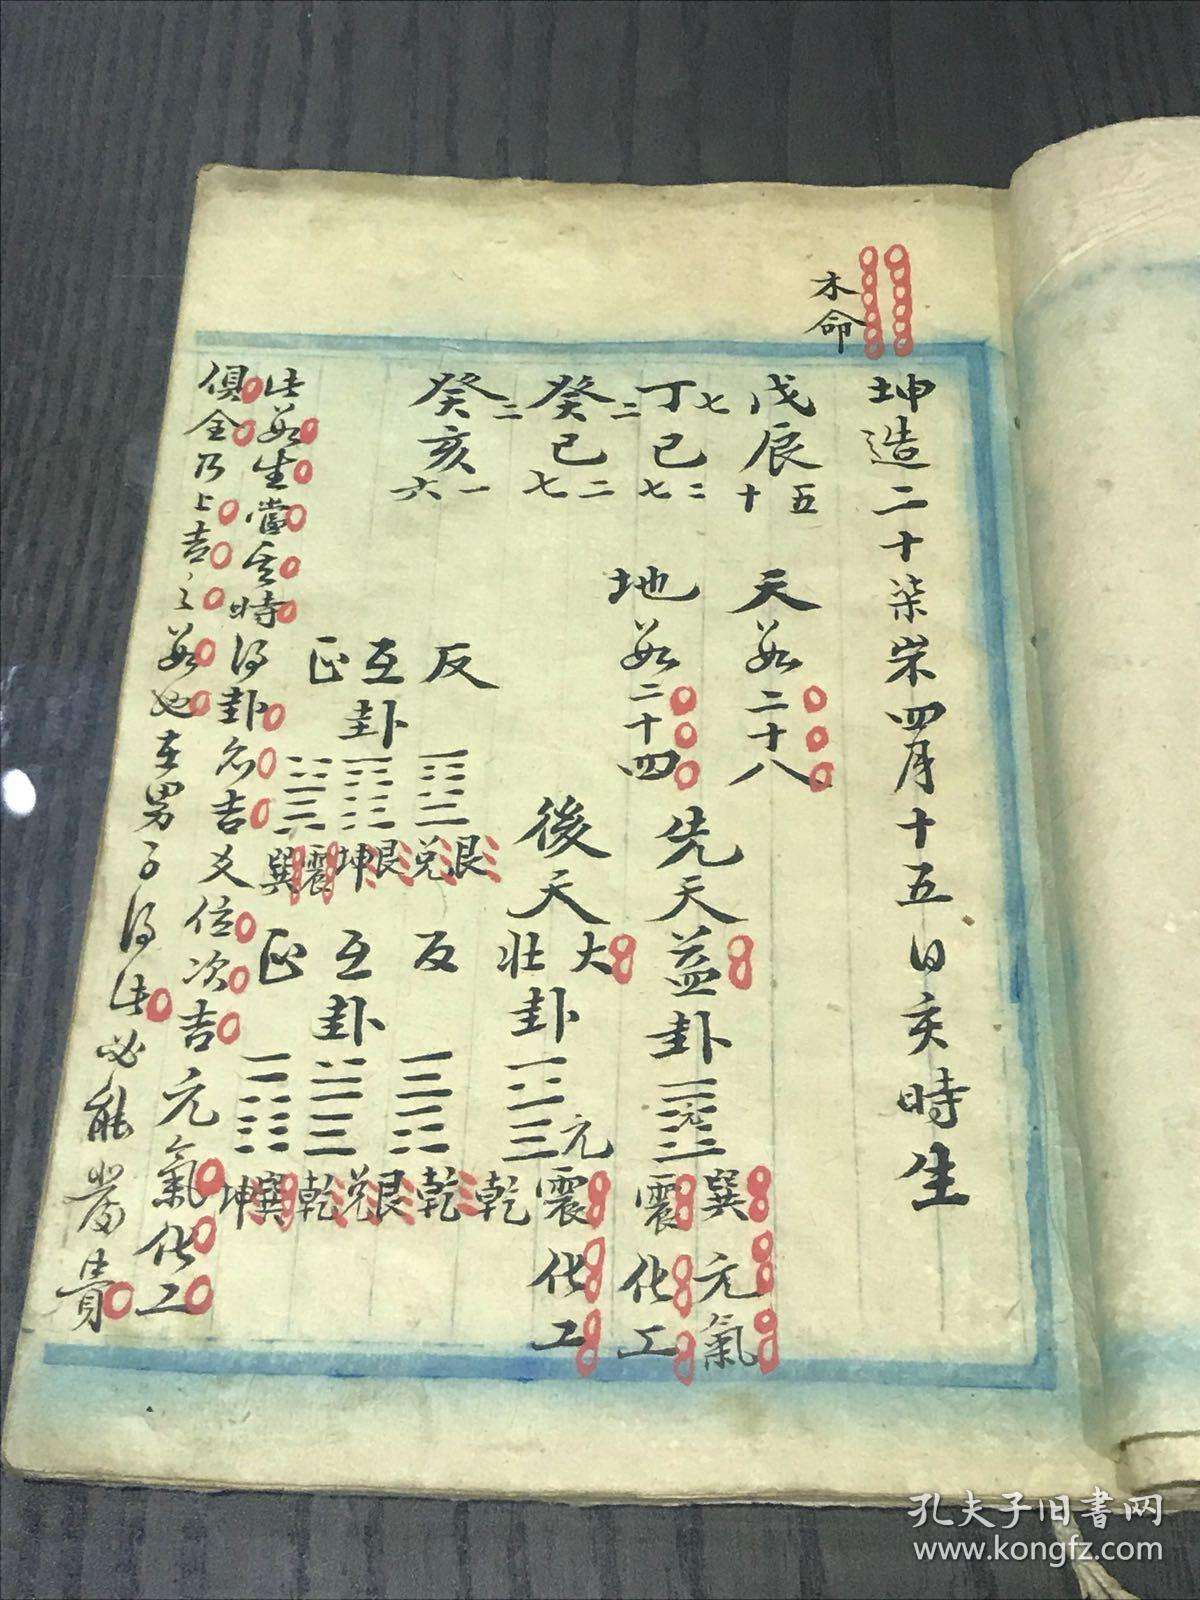 木命
坤造二十柒岁四月十五日亥時生
戊辰 五十
丁七巳 二七
癸二巳 二七
癸二亥 一六
天数二十八
地数二十四
先天益卦 元 巽震 元氣 化工
後天大壯卦 元 震乾 化工
反 艮兌
互卦 艮坤
正 震巽
反 乾艮
互卦 兌乾
正 巽坤
此数生當其時得卦名吉爻位次吉元氣化工
俱全乃上吉之数也在男子得此必能發貴
孔夫子旧書网
www.kongfz.com